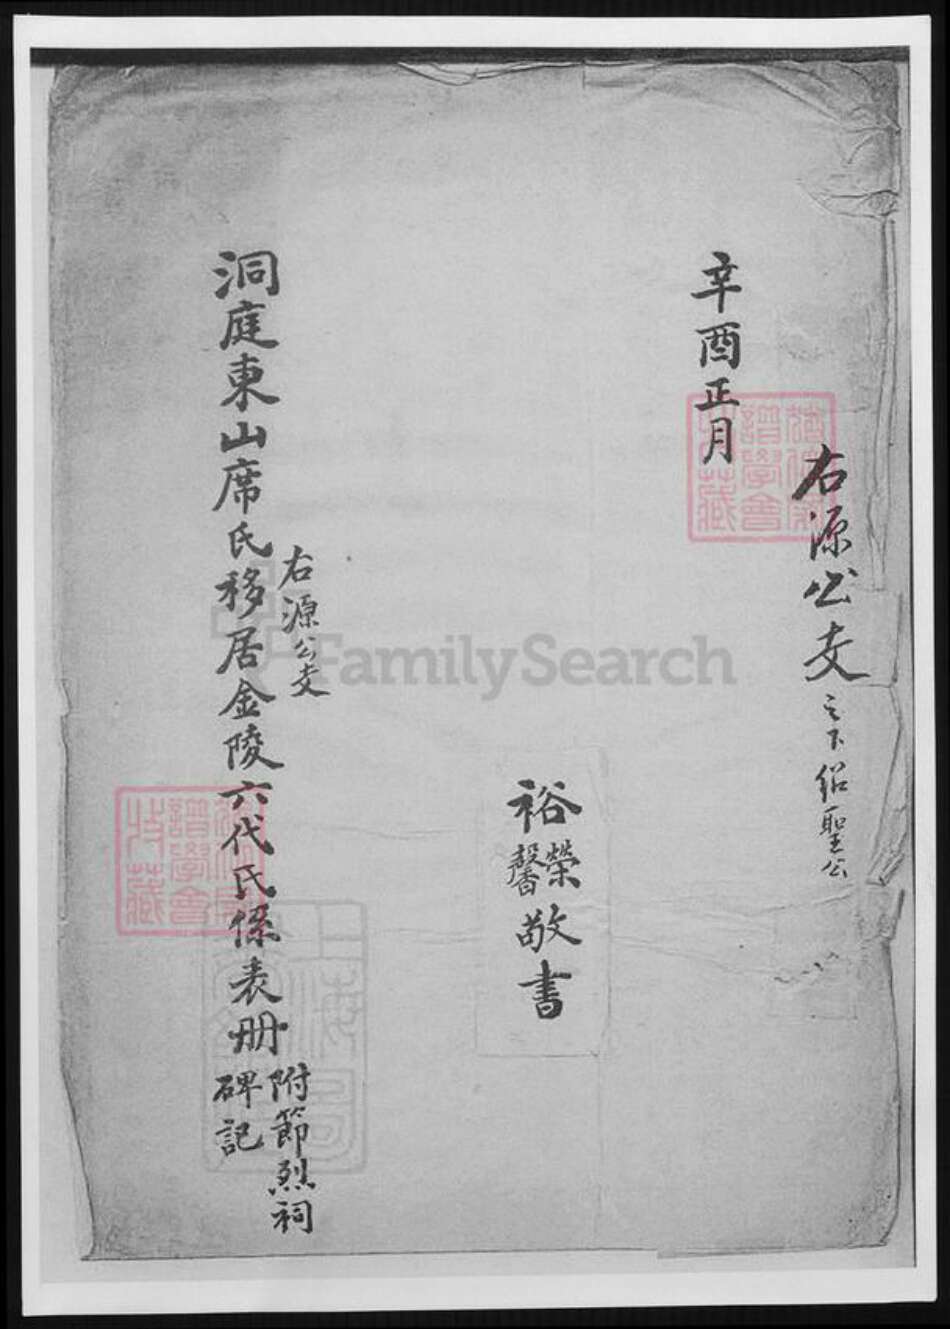 右源公支之下紹聖公
辛酉正月
裕榮馨敬書
右源公支
洞庭東山席氏移居金陵六代氏係表册
附節烈祠
碑記
FamilySearch